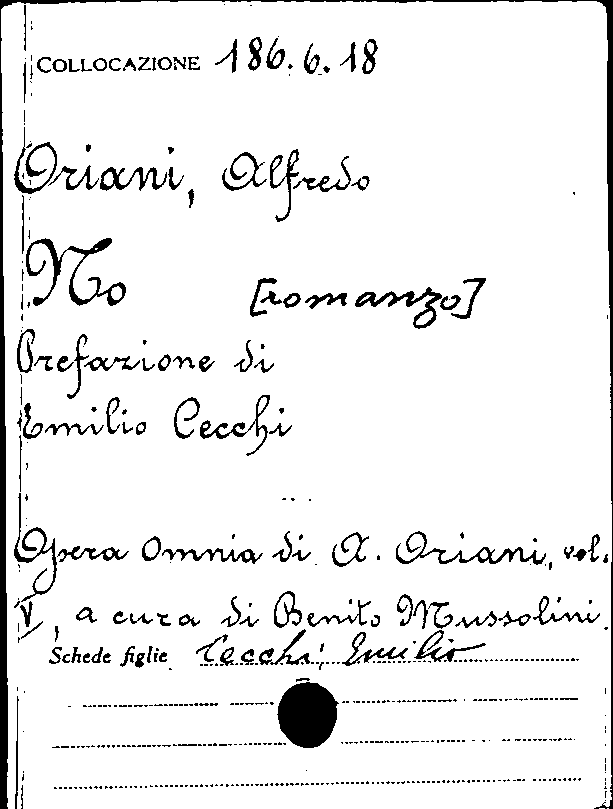 COLLOCAZIONE 186.6.18
Oriani, Alfredo
No [romanzo]
Prefazione di
Emilio Cecchi
Opera Omnia di A. Oriani, vol.
V, a cura di Benito Mussolini.
Schede figlie Cecchi, Emilio